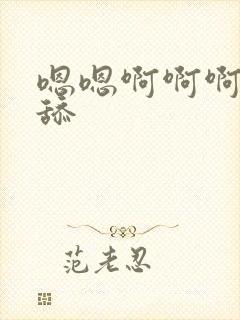 嗯嗯啊啊啊
舔
范老忍